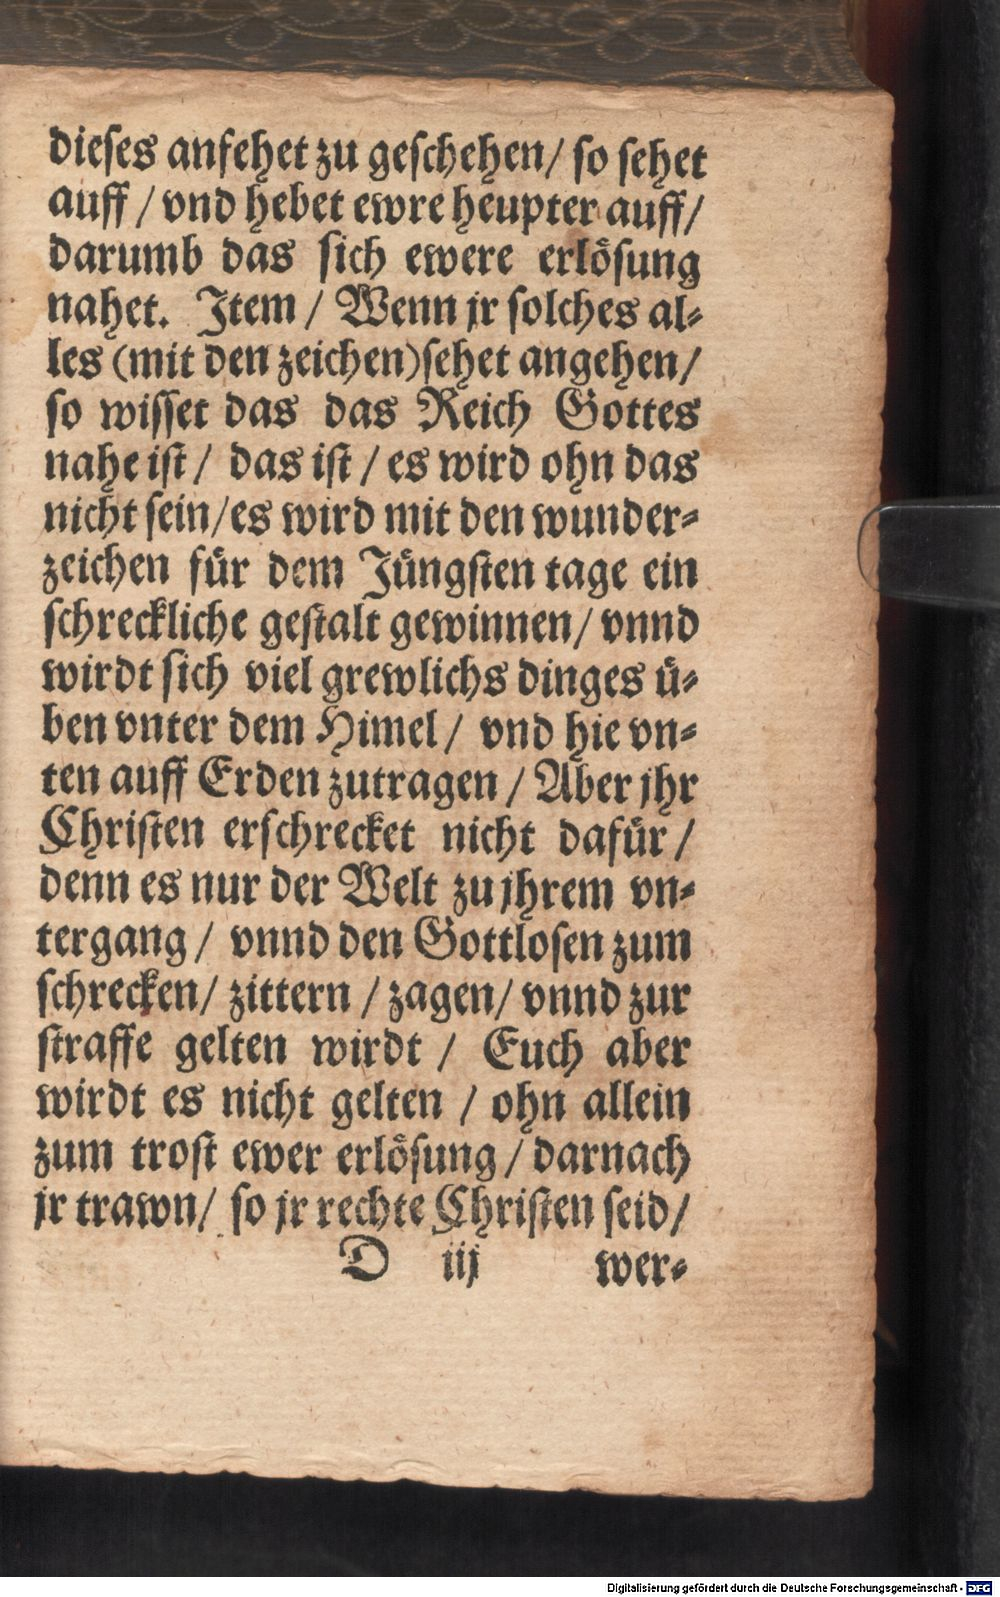 dieses anfehet zu geschehen/ so sehet
auff / vnd hebet ewre heupter auff/
darumb das sich ewere erlösung
nahet. Item / Wenn jr solches al-
les (mit den zeichen)sehet angehen/
so wisset das das Reich Gottes
nahe ist / das ist / es wird ohn das
nicht sein/es wird mit den wunder-
zeichen für dem Jüngsten tage ein
schreckliche gestalt gewinnen/ vnnd
wirdt sich viel grewlichs dinges ü-
ben vnter dem Himel / vnd hie vn-
ten auff Erden zutragen / Aber jhr
Christen erschrecket nicht dafür /
denn es nur der Welt zu jhrem vn-
tergang / vnnd den Gottlosen zum
schrecken/ zittern / zagen/ vnnd zur
straffe gelten wirdt / Euch aber
wirdt es nicht gelten / ohn allein
zum trost ewer erlösung / darnach
jr trawn/ so jr rechte Christen seid/
D iij wer-
Digitalisierung gefördert durch die Deutsche Forschungsgemeinschaft - DFG